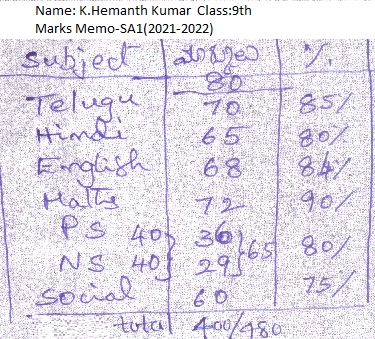 Name: K.Hemanth Kumar Class:9th
Marks Memo-SA1(2021-2022)
Subject %
80
Telugu 70 85%
Hindi 65 80%
English 68 84%
Maths 72 90%
PS 40 36
65 80%
NS 40 29
Social 60 75%
total 400/480